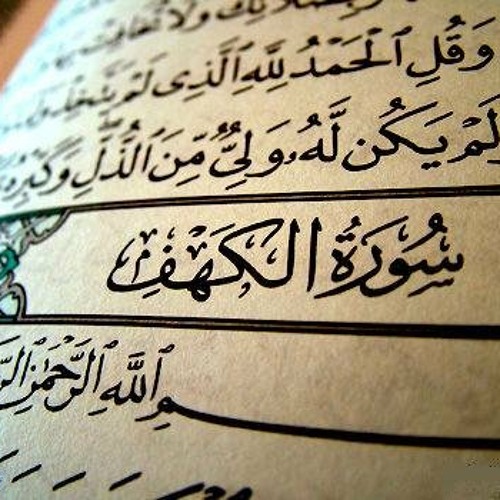 بِصَلَاتِكَ وَلَا تُخَافِتْ بِهَا
وَقُلِ ٱلْحَمْدُ لِلَّهِ ٱلَّذِى لَمْ يَتَّخِذْ
لَمْ يَكُن لَّهُۥ وَلِىٌّ مِّنَ ٱلذُّلِّ وَكَبِّرْهُ
سُورَةُ الكَهْفِ
ـمِ ٱللَّهِ ٱلرَّحْمَٰنِ